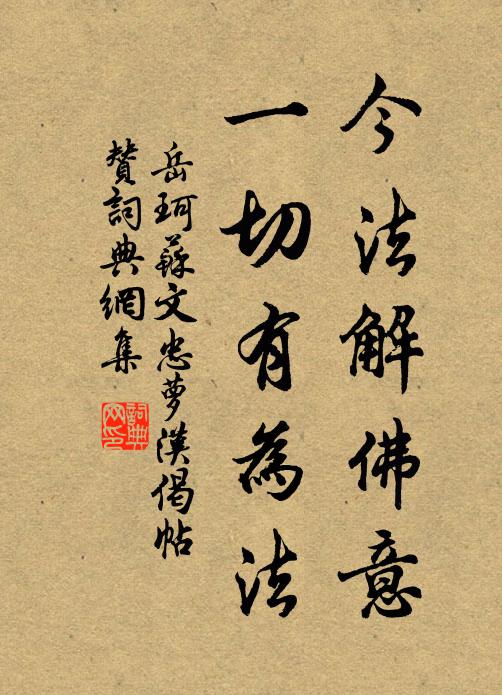 今法解佛意
一切有為法
岳珂蘇文忠夢漢偈帖
贊詞典網集
詞典網印